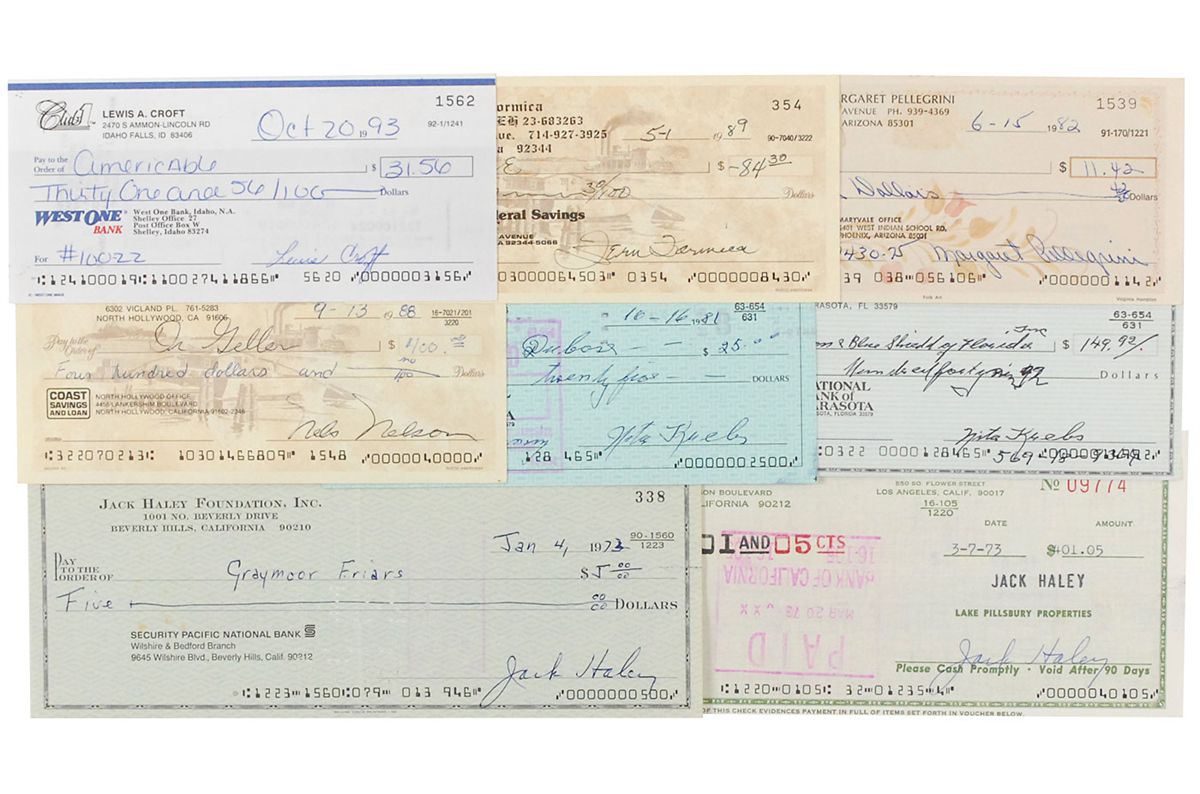 Club1
LEWIS A. CROFT
2470 S AMMON-LINCOLN RD
IDAHO FALLS, ID 83406
1562
Oct 20 1993
92-1/1241
Pay to the Order of AmericAble $ 31.56
Thirty One and 56/100 Dollars
WEST ONE BANK
West One Bank, Idaho, N.A.
Shelley Office 27
Post Office Box W
Shelley, Idaho 83274
For #10022 Lewis Croft
⑆124100019⑆ 11002741 1866⑈ 5620 ⑈0000003156⑈
ormica
EH 23-683263
ve. 714-927-3925
a 92344
354
5-1 1989
90-7040/3222
E $ -84 30
30/100 Dollars
eral Savings
AVENUE
A 92344-5066
Fern Formica
03000064503⑈ 0354 ⑈0000008430⑈
RGARET PELLEGRINI
AVENUE PH. 939-4369
ARIZONA 85301
1539
6-15 1982
91-170/1221
$ 11.42
Dollars Dollars
MARYVALE OFFICE
5401 WEST INDIAN SCHOOL RD.
PHOENIX, ARIZONA 85031
430-25 Margaret Pellegrini
39 038⑉056106⑈ ⑈0000001142
Folk Art
Virginia Hampton
6302 VICLAND PL. 761-5283
NORTH HOLLYWOOD, CA 91606
9-13 1988
16-7021/201
3220
Pay to the Order of Dr Geller $ 400.00
Four hundred dollars and no/100 Dollars
COAST SAVINGS AND LOAN
NORTH HOLLYWOOD OFFICE
4455 LANKERSHIM BOULEVARD
NORTH HOLLYWOOD, CALIFORNIA 91602-2346
Nels Nelson
⑆322070213⑆ 10301466809⑈ 1548 ⑈0000040000⑈
10-16 1981
63-654
631
Dubose $ 25.00
twenty five DOLLARS
Nita Krebs
128 465⑈ ⑈0000002500⑈
RASOTA, FL 33579
63-654
631
& Blue Shield of Florida Inc $ 149.92
Dollars
NATIONAL
BANK of
SARASOTA
SOTA, FLORIDA 33579
Nita Krebs
⑆0322 0000128465⑈
JACK HALEY FOUNDATION, INC.
1001 NO. BEVERLY DRIVE
BEVERLY HILLS, CALIFORNIA 90210
338
Jan 4, 1973
90-1560
1223
PAY TO THE ORDER OF Graymoor Friars $ 5 00/00
Five 00/00 DOLLARS
SECURITY PACIFIC NATIONAL BANK
Wilshire & Bedford Branch
9645 Wilshire Blvd., Beverly Hills, Calif. 90212
Jack Haley
⑆1223⑉1560⑆079⑉ 013 946⑈ ⑈0000000500⑈
ON BOULEVARD
IFORNIA 90212
550 SO. FLOWER STREET
LOS ANGELES, CALIF. 90017
16-105
1220
No 09774
DATE
AMOUNT
01 AND 05 CTS
3-7-73
$401.05
16-105
BANK OF CALIFORNIA
MAR 20 73 XX
PAID
JACK HALEY
LAKE PILLSBURY PROPERTIES
Jack Haley
Please Cash Promptly · Void After 90 Days
⑆1220⑉0105⑆ 32⑉01235⑉4⑈ ⑈0000040105⑈
OF THIS CHECK EVIDENCES PAYMENT IN FULL OF ITEMS SET FORTH IN VOUCHER BELOW.